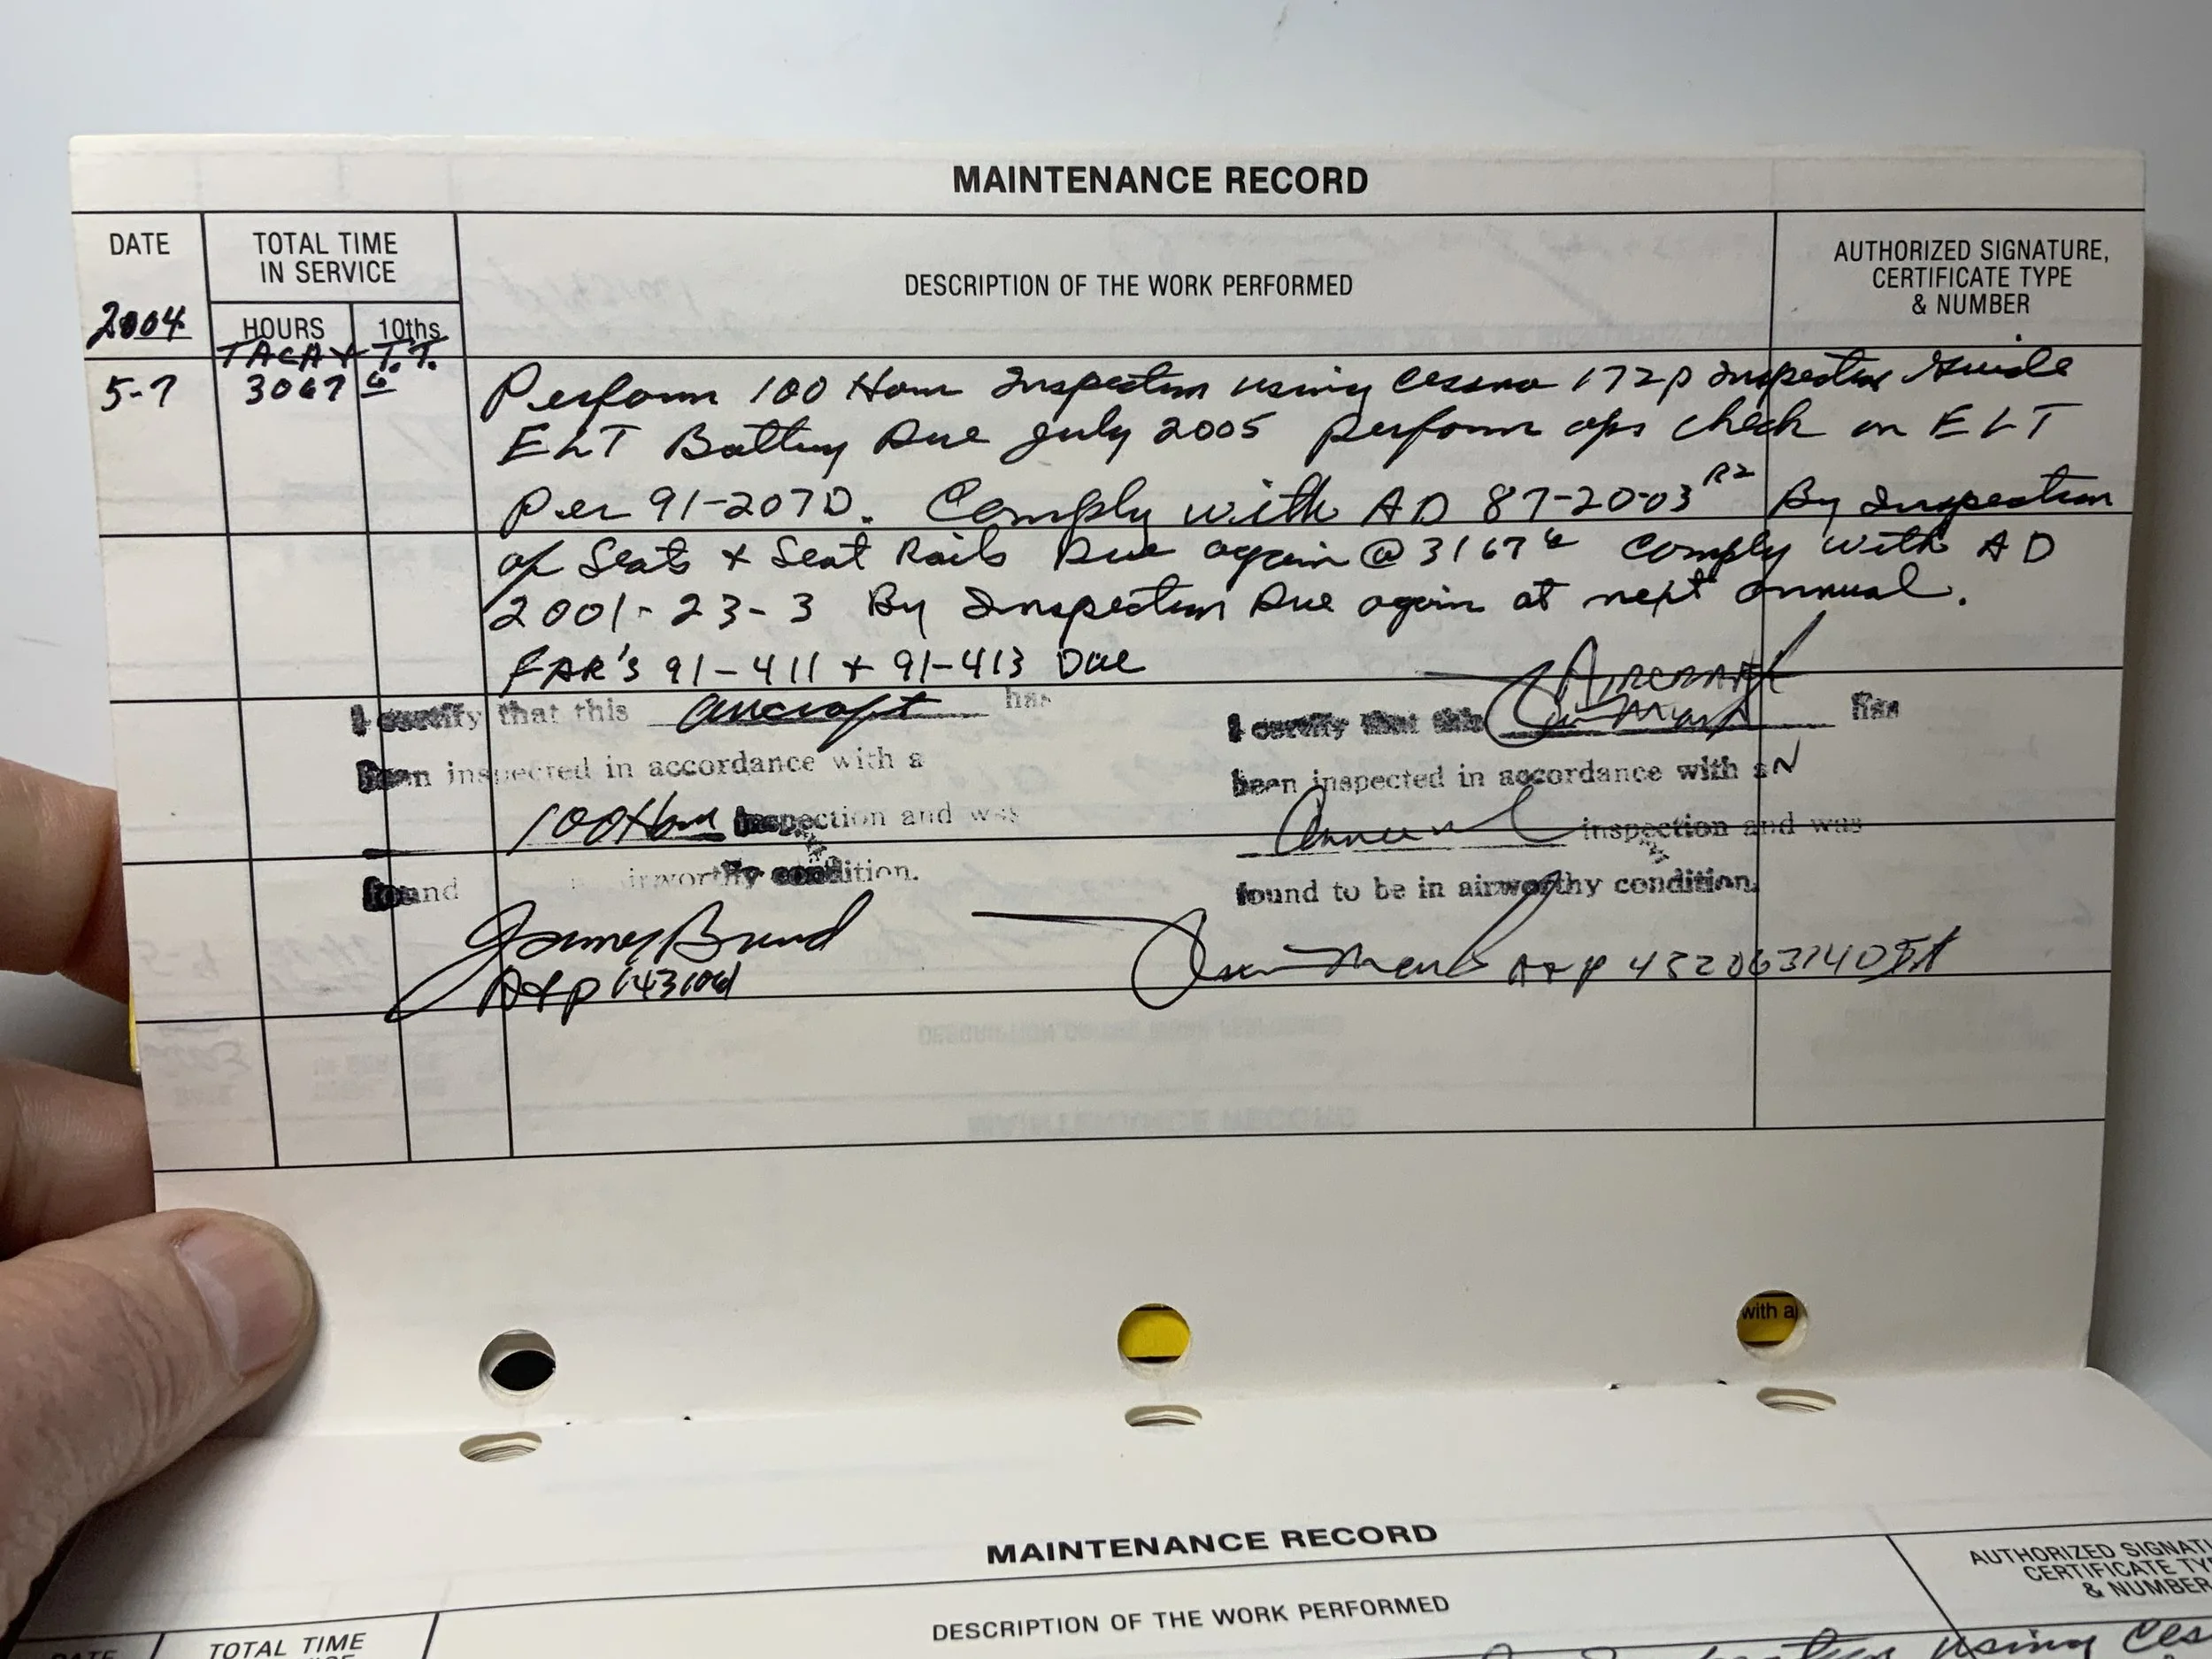 MAINTENANCE RECORD
DATE
TOTAL TIME
IN SERVICE
DESCRIPTION OF THE WORK PERFORMED
AUTHORIZED SIGNATURE,
CERTIFICATE TYPE
& NUMBER
2004
HOURS
10ths
TACH + T.T.
5-7
3067 6
Perform 100 Hour Inspection using Cessna 172p Inspection Guide
ELT Battery Due July 2005 perform ops check on ELT
Per 91-207D. Comply with AD 87-20-03 R2 By Inspection
of Seats + Seat Rails Due again @ 3167 6 Comply with AD
2001-23-3 By Inspection Due again at next annual.
FAR's 91-411 + 91-413 Due
I certify that this aircraft has
been inspected in accordance with a
100 Hour inspection and was
found airworthy condition.
A+P
AIRCRAFT
I certify that this has
been inspected in accordance with aN
Annual inspection and was
found to be in airworthy condition.
A+P
MAINTENANCE RECORD
DATE
TOTAL TIME
DESCRIPTION OF THE WORK PERFORMED
AUTHORIZED SIGNAT
CERTIFICATE TY
& NUMBER
using Ces
with a